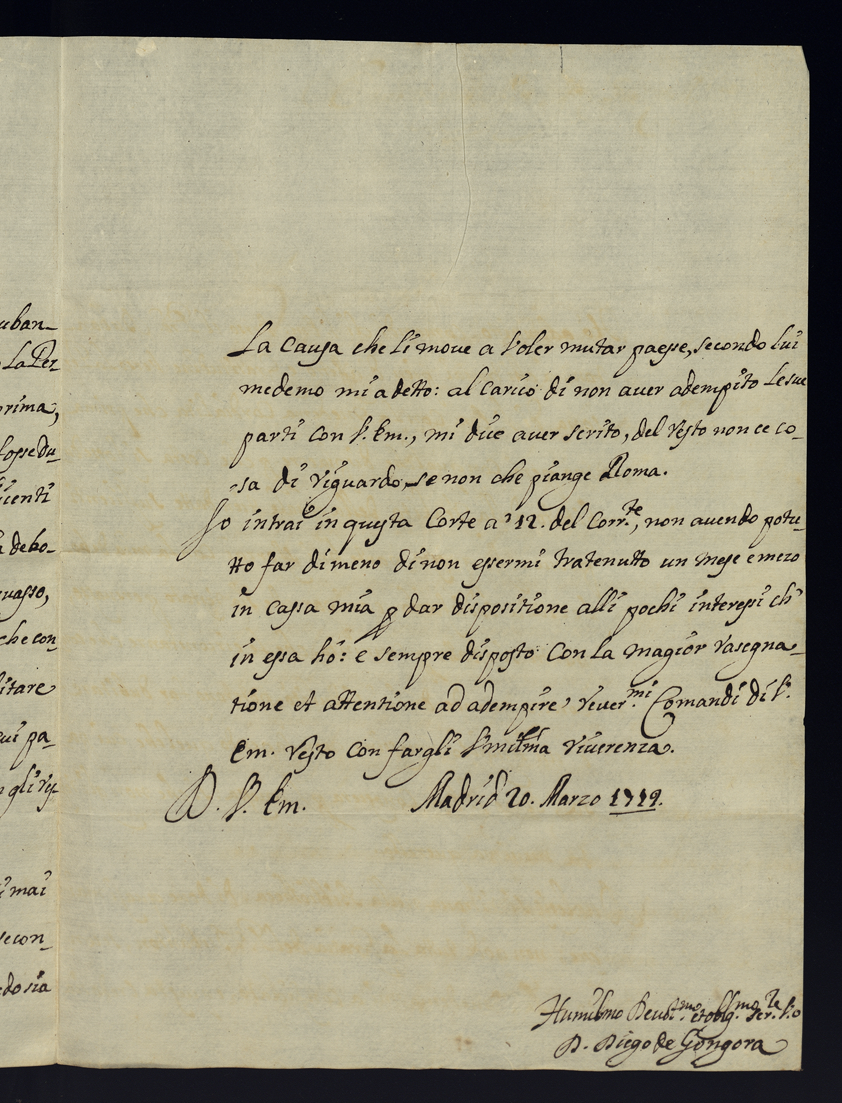 uban-
La Per
prima,
fosse du-
icenti
a debo-
uasso,
che con
litare
cui pa-
n gli ris-
i mai
secon-
do sia
La Causa che li moue a Voler mutar paese, secondo lui
medemo mi a detto: al Carico di non auer adempito Le sue
parti con V. Em., mi dice auer scrito, del resto non ce co-
-sa di riguardo, se non che piange Roma.
Io intrai in questa Corte a 12. del Corr.te, non auendo potu-
tto far di meno di non essermi tratenutto un mese e mezo
in Cassa mia p dar dispositione alli pochi interessi ch'
in essa hó: e sempre disposto Con La magior rasegna-
tione et attentione ad adempire' riuer.mi Comandi di V.
Em. resto Con fargli Vmilma riuerenza.
D. V. Em. Madrid 20. Marzo 1719.
Humilmo Deuot.mo et oblig.mo Ser.re V.o
D. Diego de Gongora